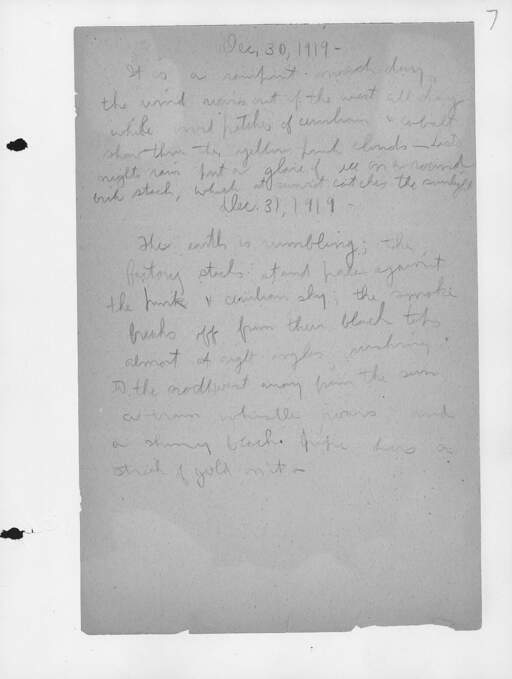 7
Dec. 30, 1919 -
It is a march day,
the wind roars out of the west all day
while vivid petches of cerulean & cobalt
show thru the yellow pink clouds — Last
nights rain put a glaze of ice on a round
brick stack, which at sunset catches the sunlight
Dec. 31, 1919 -
The earth is rumbling; the
factory stacks stand pale against
the pink & cerulean sky; the smoke
breaks off from their black tops
almost at right angles rushing
to the away from the sun
a train whistle roars and
a shiny black pipe has a
streak of gold on it -